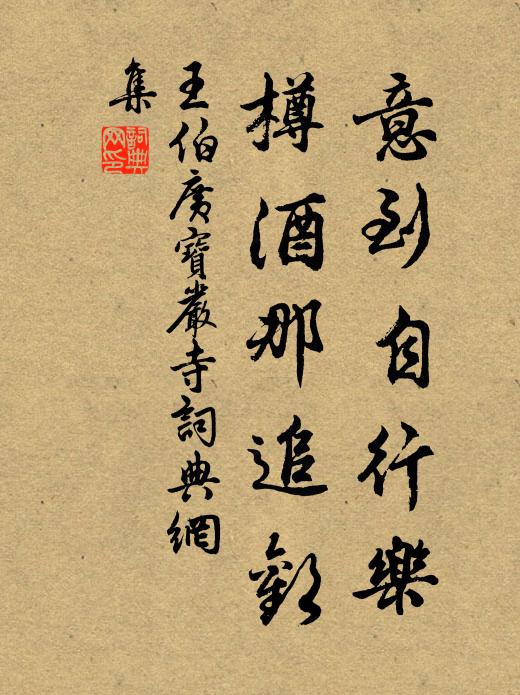 意到自行樂
樽酒那追歡
王伯廣寶嚴寺詞典網
集
詞典
网印